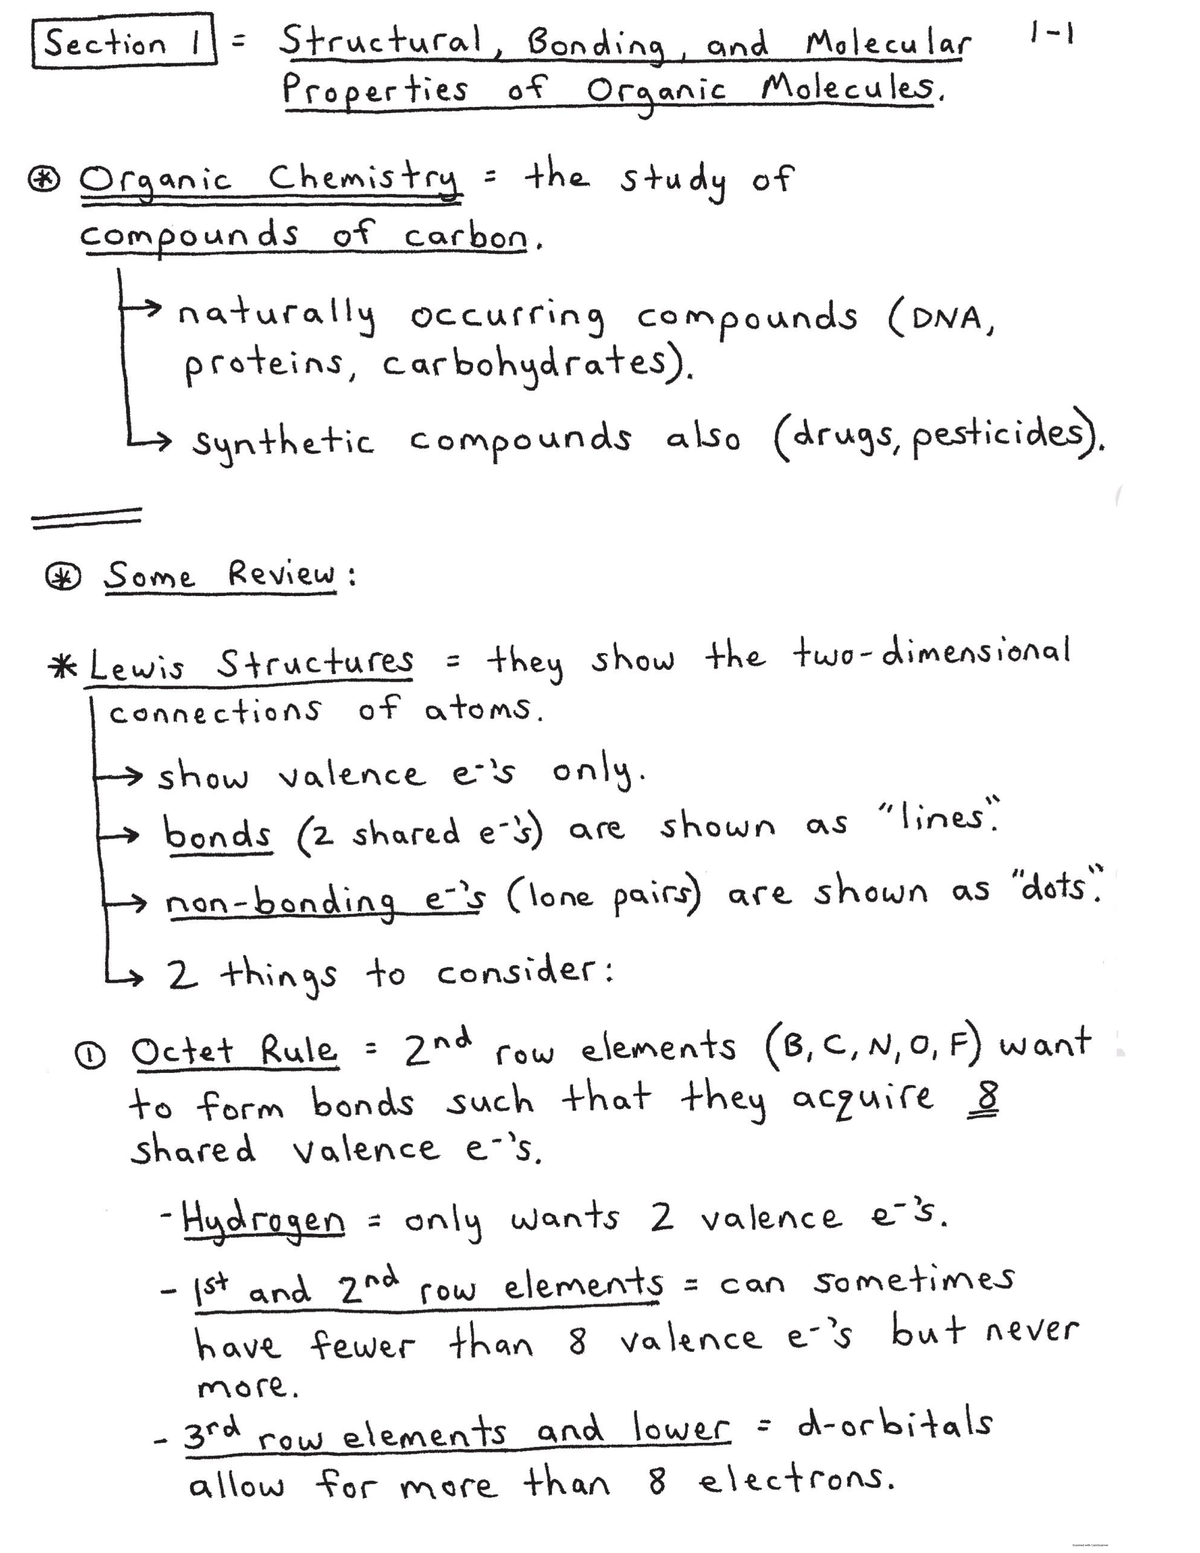 Section 1 = Structural, Bonding, and Molecular 1-1
Properties of Organic Molecules.
⊛ Organic Chemistry = the study of
compounds of carbon.
→ naturally occurring compounds (DNA,
proteins, carbohydrates).
→ synthetic compounds also (drugs, pesticides).
⊛ Some Review:
* Lewis Structures = they show the two-dimensional
connections of atoms.
→ show valence e-'s only.
→ bonds (2 shared e-'s) are shown as "lines".
→ non-bonding e-'s (lone pairs) are shown as "dots".
→ 2 things to consider:
① Octet Rule = 2nd row elements (B, C, N, O, F) want
to form bonds such that they acquire 8
shared valence e-'s.
- Hydrogen = only wants 2 valence e-'s.
- 1st and 2nd row elements = can sometimes
have fewer than 8 valence e-'s but never
more.
- 3rd row elements and lower = d-orbitals
allow for more than 8 electrons.